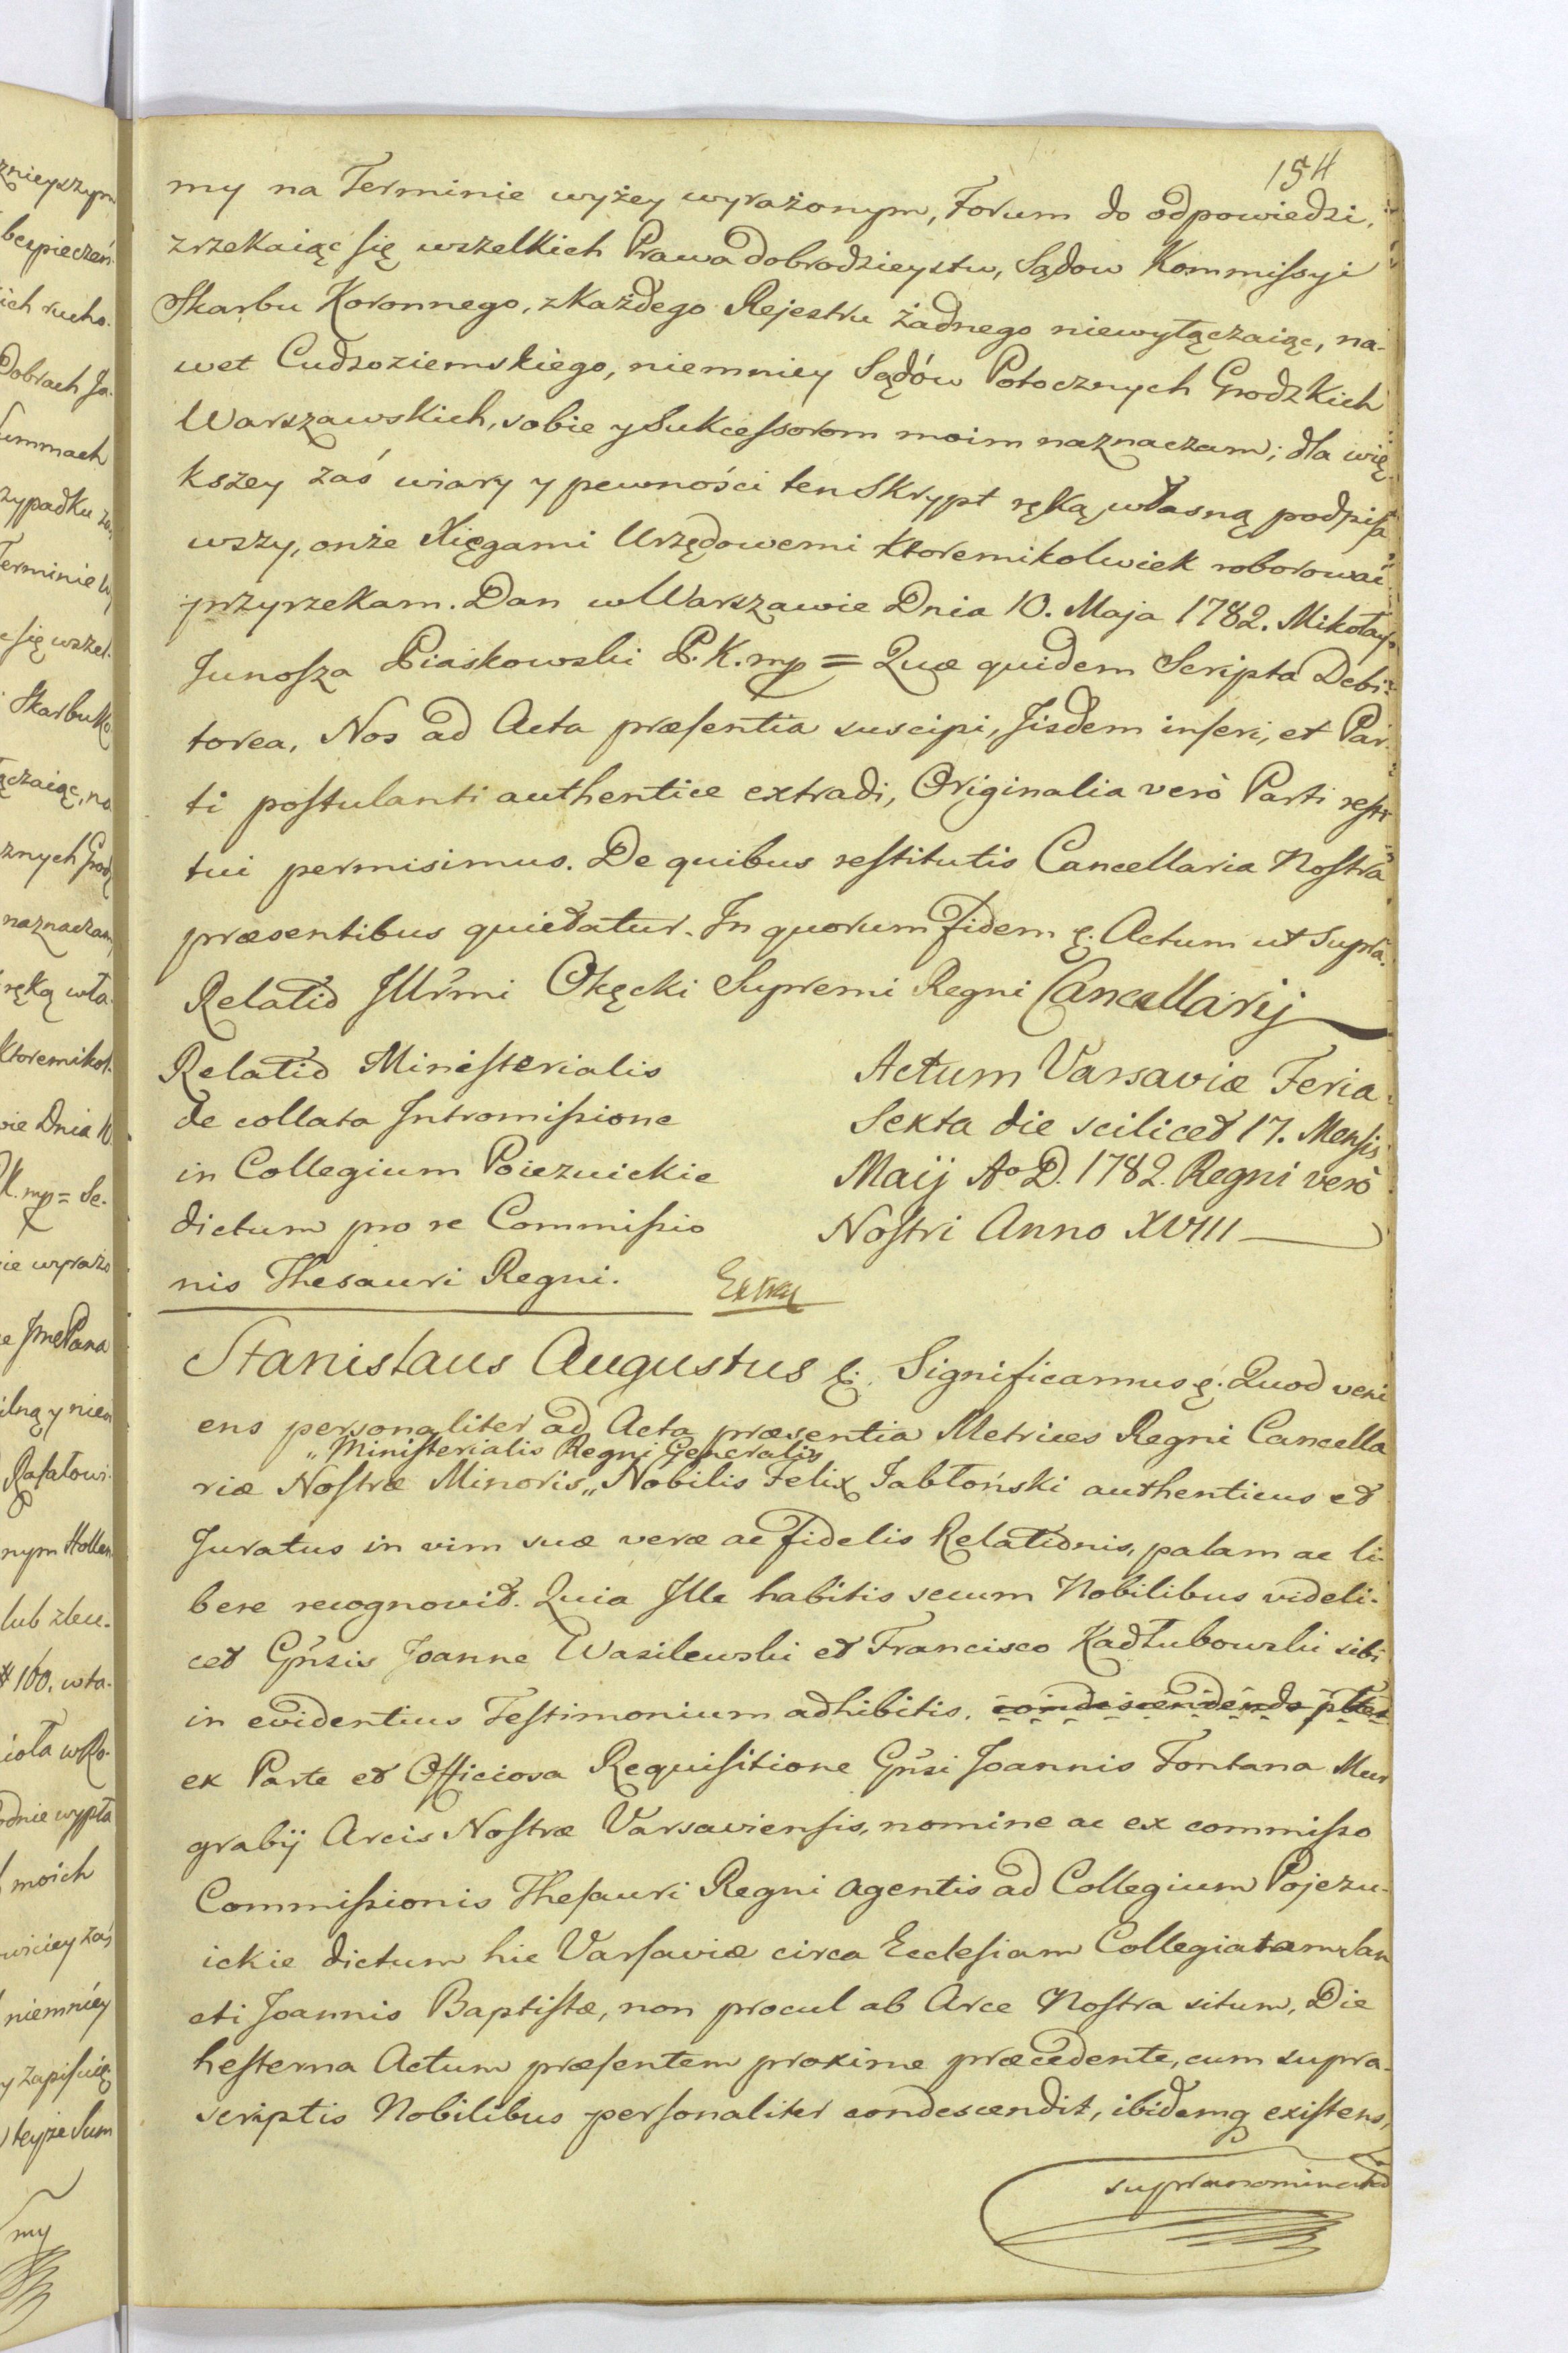 154
my na Terminie wyżey wyrażonym, Forum do odpowiedzi,
zrzekaiąc się wszelkich Prawa dobrodzieystw, Sądow Kommissyi
Skarbu Koronnego, z każdego Rejestru żadnego niewyłączaiąc, na-
wet Cudzoziemskiego, niemniey Sądów Potocznych Grodzkich
Warszawskich, sobie y Sukcessorom moim naznaczam; dla wię-
kszey zaś wiary y pewności ten Skrypt ręką własną podpisa
wszy, onże Xięgami Urzędowemi ktoremikolwiek roborować
przyrzekam. Dan w Warszawie Dnia 10. Maja 1782. Mikołay
Junosza Piaskowski P. K. mp = Quæ quidem Scripta Debi-
torea, Nos ad Acta præsentia suscipi, Iisdem inseri, et Par-
ti postulanti authentice extradi, Originalia verò Parti resti
tui permisimus. De quibus restitutis Cancellaria Nostra
præsentibus quietatur. In quorum fidem &. Actum ut Supra.
Relatio Illr̃mi Okęcki Supremi Regni Cancellarij
Relatio Ministerialis
de collata Intromissione
in Collegium Poiezuickie
dictum pro re Commissio
nis Thesauri Regni.
Extrad
Actum Varsaviæ Feria
Sexta die scilicet 17. Mensis
Maij Ao D. 1782. Regni verò
Nostri Anno XVIII
Stanislaus Augustus &. Significamus &. Quod veni
ens personaliter ad Acta præsentia Metrices Regni Cancella
„Ministerialis Regni Generalis
riæ Nostræ Minoris„ Nobilis Felix Jabłoński authenticus et
Juratus in vim suæ veræ ac fidelis Relationis, palam ac li-
bere recognovit. Quia Ille habitis secum Nobilibus videli-
cet Gñsis Joanne Wasilewski et Francisco Kadłubowski sibi
in evidentius Testimonium adhibitis. condescendendo
ex Parte et Officiosa Requisitione Gñsi Joannis Fontana Mur
grabij Arcis Nostræ Varsaviensis, nomine ac ex commisso
Commissionis Thesauri Regni agentis ad Collegium Pojezu-
ickie dictum hic Varsaviæ circa Ecclesiam Collegiatam San
cti Joannis Baptistæ, non procul ab Arce Nostra situm, Die
hesterna Actum præsentem proxime præcedente, cum supra-
scriptis Nobilibus personaliter condescendit, ibidemq existens,
supranominato